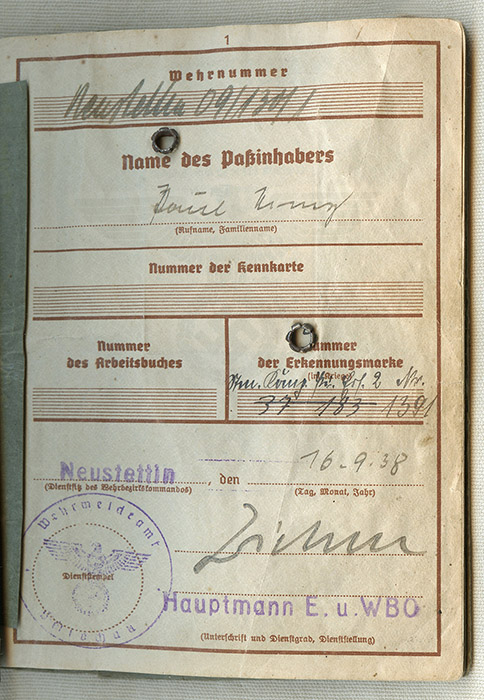 1
Wehrnummer
Neustettin 09/130/1
Name des Paßinhabers
Paul
(Rufname, Familienname)
Nummer der Kennkarte
Nummer
des Arbeitsbuches
Nummer
der Erkennungsmarke
(im Kriege)
2 Nr.
37 183 1391
Neustettin, den 16.9.38
(Dienstsitz des Wehrbezirkskommandos) (Tag, Monat, Jahr)
Wehrmeldeamt
Dienststempel
Hauptmann E. u. WBO
(Unterschrift und Dienstgrad, Dienststellung)